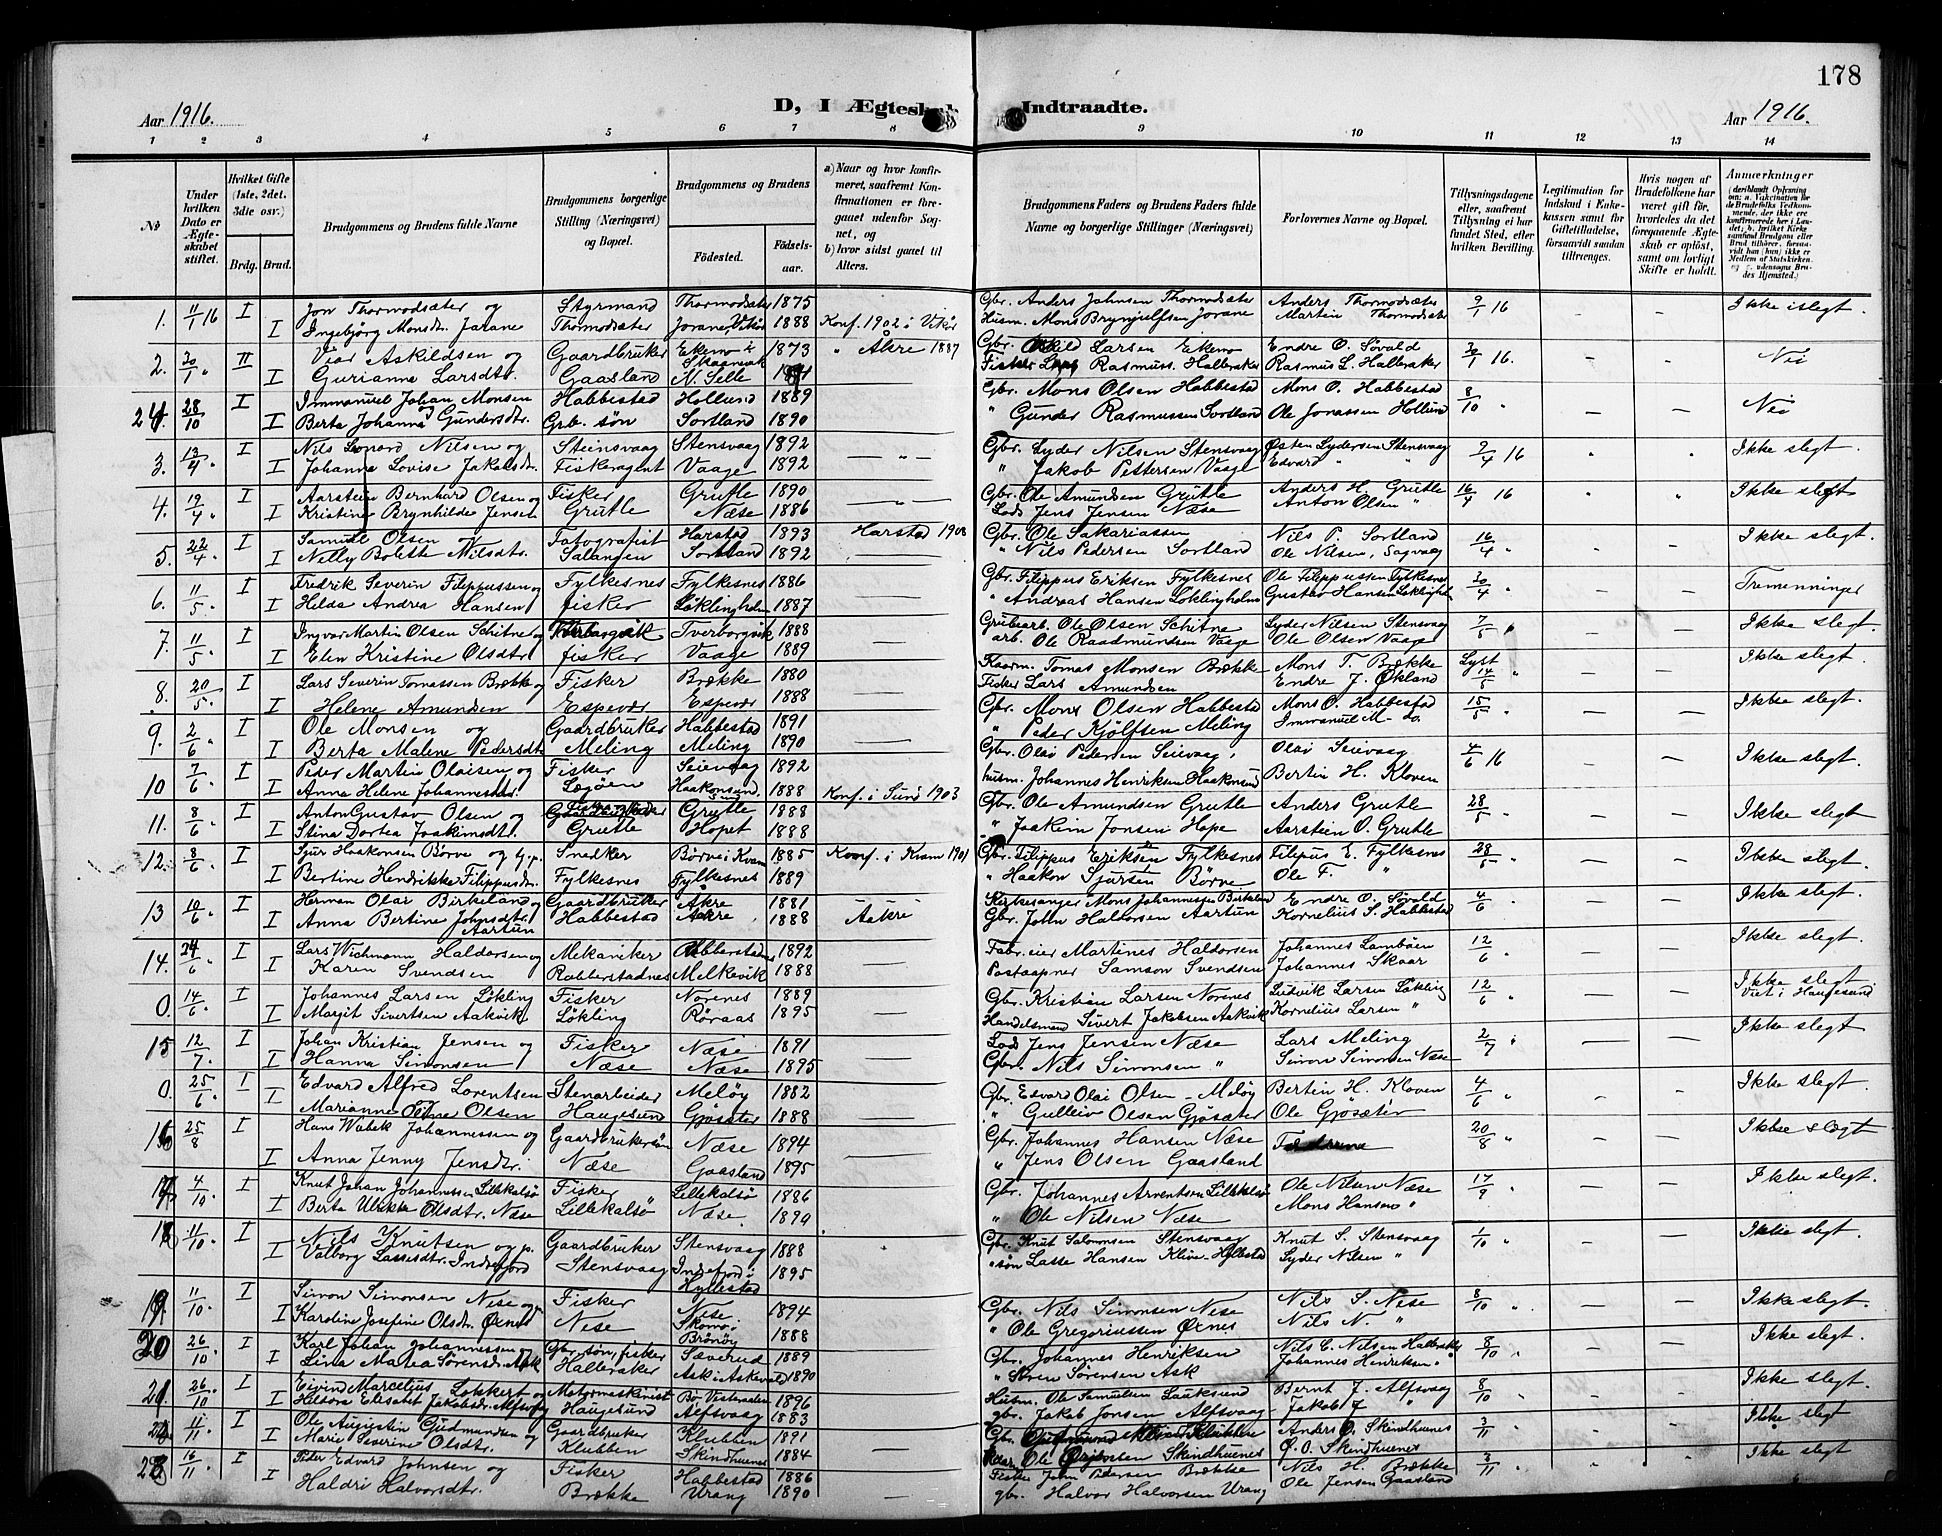 178
Aar 1916.
D, I Ægtesk
Indtraadte.
Aar 1916.
1 2 3 4 5 6 7 8 9 10 11 12 13 14
No
Under hvilken Dato er Ægteskabet stiftet.
Hvilket Gifte (1ste, 2det, 3die osv.)
Brdg. Brud.
Brudgommens og Brudens fulde Navne
Brudgommens borgerlige Stilling (Næringsvei) og Bopæl.
Brudgommens og Brudens
Födested.
Födselsaar.
a) Naar og hvor konfirmeret, saafremt Konfirmationen er foregaaet udenfor Sognet, og
b) hvor sidst gaaet til Alters.
Brudgommens Faders og Brudens Faders fulde Navne og borgerlige Stillinger (Næringsvei)
Forlovernes Navne og Bopæl.
Tillysningsdagene eller, saafremt Tillysning ei har fundet Sted, efter hvilken Bevilling.
Legitimation for Indskud i Enkekassen samt for Giftetilladelse, forsaavidt saadan tiltrænges.
Hvis nogen af Brudefolkene har været gift før, hvorledes da det foregaaende Ægteskab er oplöst, samt om lovligt Skifte er holdt.
Anmærkninger
1. 11/1 16 I Jon Thormodsæter og Styrmand Thormodsæter 1875 Gbr. Anders Johnsen Thormodsæter Anders Thormodsæter 9/1 16 Ikke islegt
I Ingebjörg Monsdr. Jorane Thormodsæter Jorane, Vikör 1888 Konf. 1902 i Vikör Husm. Mons Brynjulfsen Jorane Martin Thormodsæter
2. 30/1 " II Askildsen og Gaardbruker Ekemo i Skaanevik 1873 " Akre 1887 Gbr. Larsen Ekemo Endre O. Søvold 30/1 16. Nei
I Gurianne Larsdtr. Gaasland N. Selle Fisker Lars Rasmuss. Halleraker Rasmus L. Halleraker
24. 28/10 I Immanuel Johan Monsen og Habbestad Hollund 1889 Gbr. Mons Olsen Habbestad Mons O. Habbestad 8/10 " Nei
I Berta Johanna Gundersdtr. Grb. søn Sortland 1890 " Gunder Rasmussen Sortland Ole Jonassen Hollund
3. 13/4 " I Nils Leonard Nilsen og Steinsvaag Stensvaag 1892 Gbr. Lyder Nilsen Stensvaag Østen Lydersen Stensvaag 9/4 16 Ikke slegt.
I Johanna Lovise Jakobsdr. Fiskeragent Vaage 1892 " Jakob Pettersen Vaage Edvard " "
4. 19/4 " I Aarstein Bernhard Olsen og Fisker Grutle 1890 Gbr. Ole Amundsen Grutle Anders H. Grutle 16/4 16 Ikke slegt
I Kristine Brynhilde Jensen Grutle Næse 1886 Lods Jens Jensen Næse Anton Olsen "
5. 22/4 I Samuel Olsen og Fotografist Harstad 1893 Harstad 1908 Gbr. Ole Sakariassen Nils P. Sortland 16/4 " Ikke slegt.
I Nelly Bolette Nilsdtr. Salangen Sortland 1892 " Nils Pedersen Sortland Ole Nilsen, Sagvaag
6. 11/5 . I Fredrik Severin Filippussen og Fylkesnes Fylkesnes 1886 Gbr. Filippus Eriksen Fylkesnes Ole Filippussen Fylkesnes 30/4 " Tremenninger
I Hilda Andrea Hansen fisker Løklingholm 1887 " Andreas Hansen Løklingholm Gustav Hansen Løklingholm
7. 11/5 . I Ingvar Martin Olsen Schitne og Tverborgvik 1888 Grubearb. Ole Olsen Schitne Lyder Nilsen Stensvaag 7/5 " Ikke slegt.
I Elen Kristine Olsdtr. fisker Vaage 1889 arb. Ole Raadmundsen Vaage Ole Olsen Vaage
8. 20/5 . I Lars Severin Tomassen Brække og Fisker Brække 1880 Kaarm. Tomas Monsen Brække Mons T. Brække Lyst 14/5 " Ikke slegt.
I Helene Amundsen Espevær Espevær 1888 Fisker Lars Amundsen Endre J. Økland
9. 2/6 " I Ole Monsen og Gaardbruker Habbestad 1891 Gbr. Mons Olsen Habbestad Mons O. Habbestad 15/5 " Ikke slegt.
I Berta Malene Pedersdtr. Meling Meling 1890 " Peder Kjølfsen Meling Immanuel M- do.
10 7/6 . I Peder Martin Olaisen og Fisker Seievaag 1892 Gbr. Olai Pedersen Seievaag Olai Seievaag 4/6 16 Ikke slegt.
I Anna Helene Johannesdtr. Løgøen Haakonsund 1888 Konf. i Sund 1903 husm. Johannes Henriksen Haakonsund Bertin H. Kloven
11. 8/6 " I Anton Gustav Olsen og Fisker Grutle 1888 Gbr. Ole Amundsen Grutle Anders Grutle 28/5 " Ikke slegt
I Stina Dortea Joakimsdtr. Grutle Hopet 1888 " Joakim Jonsen Hope Aarstein O. Grutle
12. 8/6 " I Sjur Haakonsen Börve og Snedker Börve i Kvam 1885 Konf. i Kvam 1901 Gbr. Filippus Eriksen Fylkesnes Filipus E. Fylkesnes 28/5 " Ikke slegt.
I Bertine Hendrikke Filippusdr. Fylkesnes Fylkesnes 1889 " Haakon Sjursen Börve Ole F. "
13 10/6 . I Herman Olav Birkeland og Gaardbruker Akre 1881 Kirkesanger Mons Johannessen Birkeland Endre O. Søvold 4/6 " Ikke slegt.
I Anna Bertine Johnsdtr. Aartun Habbestad Aakre 1888 Aakre Gbr. John Halvorsen Aartun Kornelius S. Habbestad
14. 24/6 " I Lars Wichmann Haldorsen og Mekaniker Rubbestadnes 1892 Fab. eier Martines Haldorsen Johannes Lambøen 12/6 " Ikke slegt.
I Karen Svendsen Rubbestadnes Melkevik 1888 Postaapner Samson Svendsen Johannes Skaar
0. 14/6 . I Johannes Larsen Løkling Fisker Norenes 1889 Gbr. Kristian Larsen Norenes Ludvik Larsen Løkling 12/6 " Ikke slegt
I Margit Sivertsen Aakvik Løkling Røraas 1895 Handelsmand Sivert Jakobsen Aakvik Kornelius Larsen " Viet i Haugesund
15 12/7 . I Johan Kristian Jensen og Fisker Næse 1891 Lods Jens Jensen Næse Lars Meling 2/7 " Ikke slegt
I Hanna Simonsen Næse Næse 1895 Gbr. Nils Simonsen " Simon Simonsen Næse
0 25/6 . I Edvard Alfred Lorentsen Stenarbeider Meløy 1882 Gbr. Edvard Olai Olsen - Meløy Bertin H. Kloven 4/6 " Ikke slegt.
I Marianne Olsen Haugesund Gjøsæter 1888 " Gulleiv Olsen Gjøsæter Ole Gjøsæter
16 25/8 I Hans Wabek Johannessen og Gaardbrukersøn Næse 1894 Gbr. Johannes Hansen Næse Fædrene 20/8 " Ikke slegt
I Anna Jenny Jensdtr. Næse Gaasland 1895 " Jens Olsen Gaasland
17 4/10 . I Knut Johan Johannessen Lillekalsø Fisker Lillekalsø 1886 Gbr. Johannes Arventsen Lillekalsø Ole Nilsen Næse 17/9 " Ikke slegt.
I Berta Ulrikke Olsdtr. Næse Lillekalsø Næse. " Ole Nilsen Næse Mons Hansen "
18 11/10 . I Nils Knutsen og Gaardbruker Stensvaag 1888 Gbr. Knut Salomonsen Stensvaag Knut S. Stensvaag 1/10 " Ikke slegt.
I Valborg Lassesdtr. Indrefjord Stensvaag Indrefjord i Hyllestad 1895 " Lasse Hansen Hyllestad Lyder Nilsen "
19 11/10 . I Simon Simonsen Nese og Fisker Nese 1894 Gbr. Nils Simonsen Nese Nils S. Nese 8/10 " Ikke slegt.
I Karoline Josefine Olsdr. Øvnes Nese Brönöy 1888 " Ole Gregoriussen Øvnes Nils N. "
20 26/10 . I Karl Johan Johannessen og Gbr. søn, fisker Sæverud 1889 Gbr. Johannes Henriksen Nils E. Nilsen Halleraker 8/10 " Ikke slegt.
I Lina Marta Sørensdr. Ask Halleraker Ask i Askvold 1890 " Søren Sørensen Ask Johannes Henriksen "
21 26/10 I Eivind Marcelius Lokkert og Motormaskinist Bø Vesteraalen 1896 Husm. Ole Samuelsen Lauksund Bernt J. Alfsvaag 8/10 " Ikke slegt.
I Hildora Elisabet Jakobsdr. Alfsvaag Haugesund Alfsvaag 1883 gbr. Jakob Jonsen Alfsvaag Jakob J "
22 11/11 . I Ole Augustin Gudmundsen og Gaardbruker Klubben 1891 Gbr. Klubben Anders O. Skindhuenes 3/11 " Ikke slegt
I Marie Severine Olsdtr. Klubben Skindhuenes 1884 Ole Skindhuenes O. O. Skindhuenes
23 16/11 . I Peder Edvard Johnsen og Fisker Habbestad 1886 Fisker John Pedersen Brække Nils H. Brække 3/11 " Ikke slegt
I Haldri Halvorsdtr. Brække Urang 1890 gbr. Halvor Halvorsen Urang Ole Jensen Gaasland